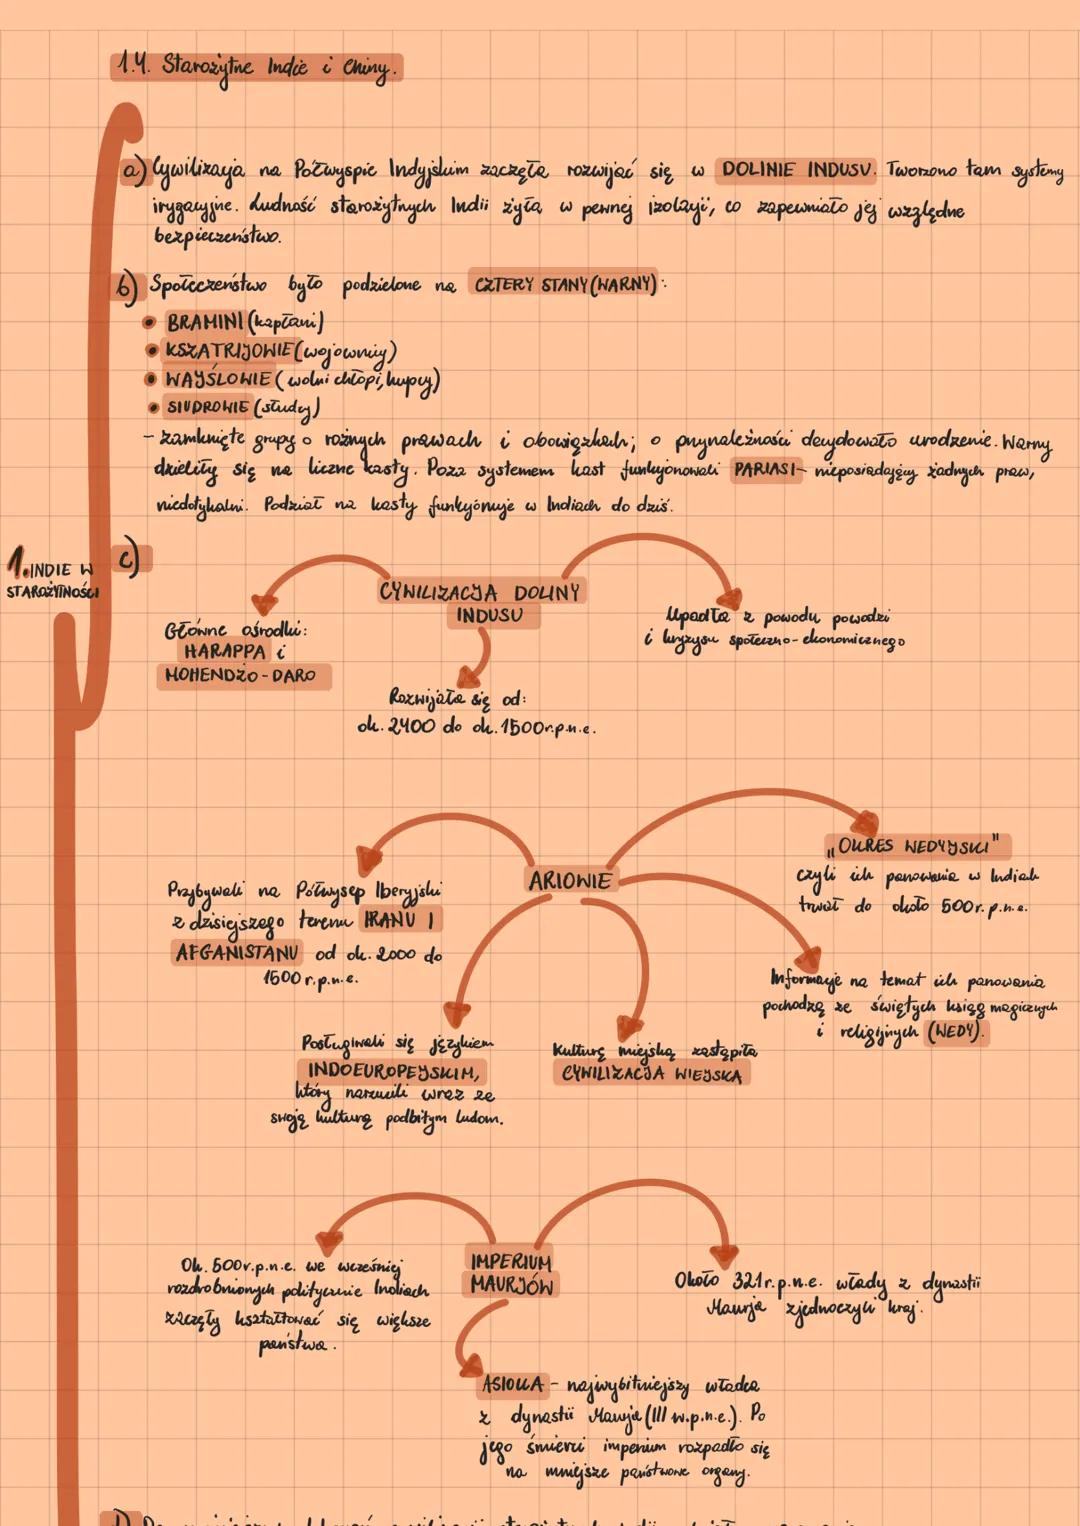 1.4. Starożytne Indie i Chiny.
a) Cywilizacja na Półwyspie Indyjskim zaczęła rozwijać się w DOLINIE INDUSU. Tworzono tam systemy
irygacyjne. Ludność starożytnych Indii żyła w pewnej izolacji, co zapewniało jej względne
bezpieczeństwo.
b) Społeczeństwo było podzielone na CZTERY STANY (WARNY):
• BRAMINI (kapłani)
• KSZATRIJOWIE (wojownicy)
• WAJŚLOWIE (wolni chłopi, kupcy)
• SIUDROWIE (słudzy)
- zamknięte grupy o rożnych prawach i obowiązkach; o przynależności decydowało urodzenie. Warny
dzieliły się na liczne kasty. Poza systemem kast funkcjonowali PARIASI - nieposiadający żadnych praw,
niedotykalni. Podział na kasty funkcjonuje w Indiach do dziś.
1. INDIE W
STAROŻYTNOŚCI
c)
CYWILIZACJA DOLINY
INDUSU
Główne ośrodki:
HARAPPA i
MOHENDŻO-DARO
Upadła z powodu powodzi
i kryzysu społeczno-ekonomicznego
Rozwijała się od:
ok. 2400 do ok. 1500r.p.n.e.
ARIOWIE
„OKRES WEDYJSKI"
czyli ich panowania w Indiach
trwał do około 500r. p.n.e.
Przybywali na Półwysep Iberyjski
z dzisiejszego terenu IRANU I
AFGANISTANU od ok. 2000 do
1500 r.p.n.e.
Informacje na temat ich panowania
pochodzą ze świętych ksiąg magicznych
i religijnych (WEDY).
Posługiwali się językiem
INDOEUROPEJSKIM,
który narzucili wraz ze
swoją kulturą podbitym ludom.
Kulturę miejską zastąpiła
CYWILIZACJA WIEJSKA
IMPERIUM
MAURJÓW
Ok. 500r.p.n.e. we wcześniej
rozdrobnionych politycznie Indiach
zaczęły kształtować się większe
państwa.
Około 321r.p.n.e. władcy z dynastii
Maurja zjednoczyli kraj.
ASIOKA - najwybitniejszy władca
z dynastii Maurja (III w.p.n.e.). Po
jego śmierci imperium rozpadło się
na mniejsze państwowe organy.